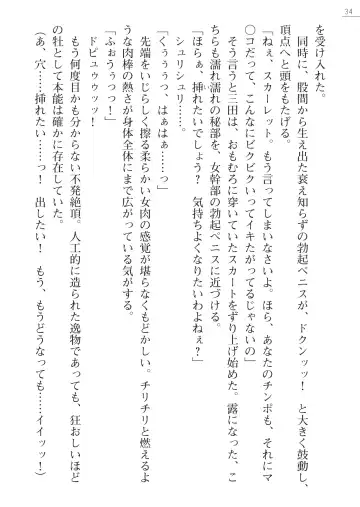 34
を受け入れた。
　同時に、股間から生え出た衰え知らずの勃起ペニスが、ドクンッッ！　と大きく鼓動し、
頂点へと頭をもたげる。
「ねぇ、スカーレット。もう言ってしまいなさいよ。ほら、あなたのチンポも、それにマ
〇コだって、こんなにビクビクいってイキたがってるじゃないの」
　そう言うと三田は、おもむろに穿いていたスカートをずり上げ始めた。露になった、こ
ちらも濡れ濡れの秘部を、女幹部の勃起ペニスに近づける。
「ほらぁ、挿れたいでしょう？　気持ちよくなりたいわよねぇ？」
　シュリシュリ……。
「くぅぅぅっ、はぁはぁ……っ」
　先端をいじらしく擦る柔らかい女肉の感覚が堪らなくもどかしい。チリチリと燃えるよ
うな肉棒の熱さが身体全体にまで広がっている気がする。
「ふぉうぅっっ！」
　ドピュゥゥッッ！
　もう何度目かも分からない不発絶頂。人工的に造られた逸物であっても、狂おしいほど
の牡として本能は確かに存在していた。
（あ、穴……挿れたい……っ！　出したい！　もう、もうどうなっても……イイッッ！）